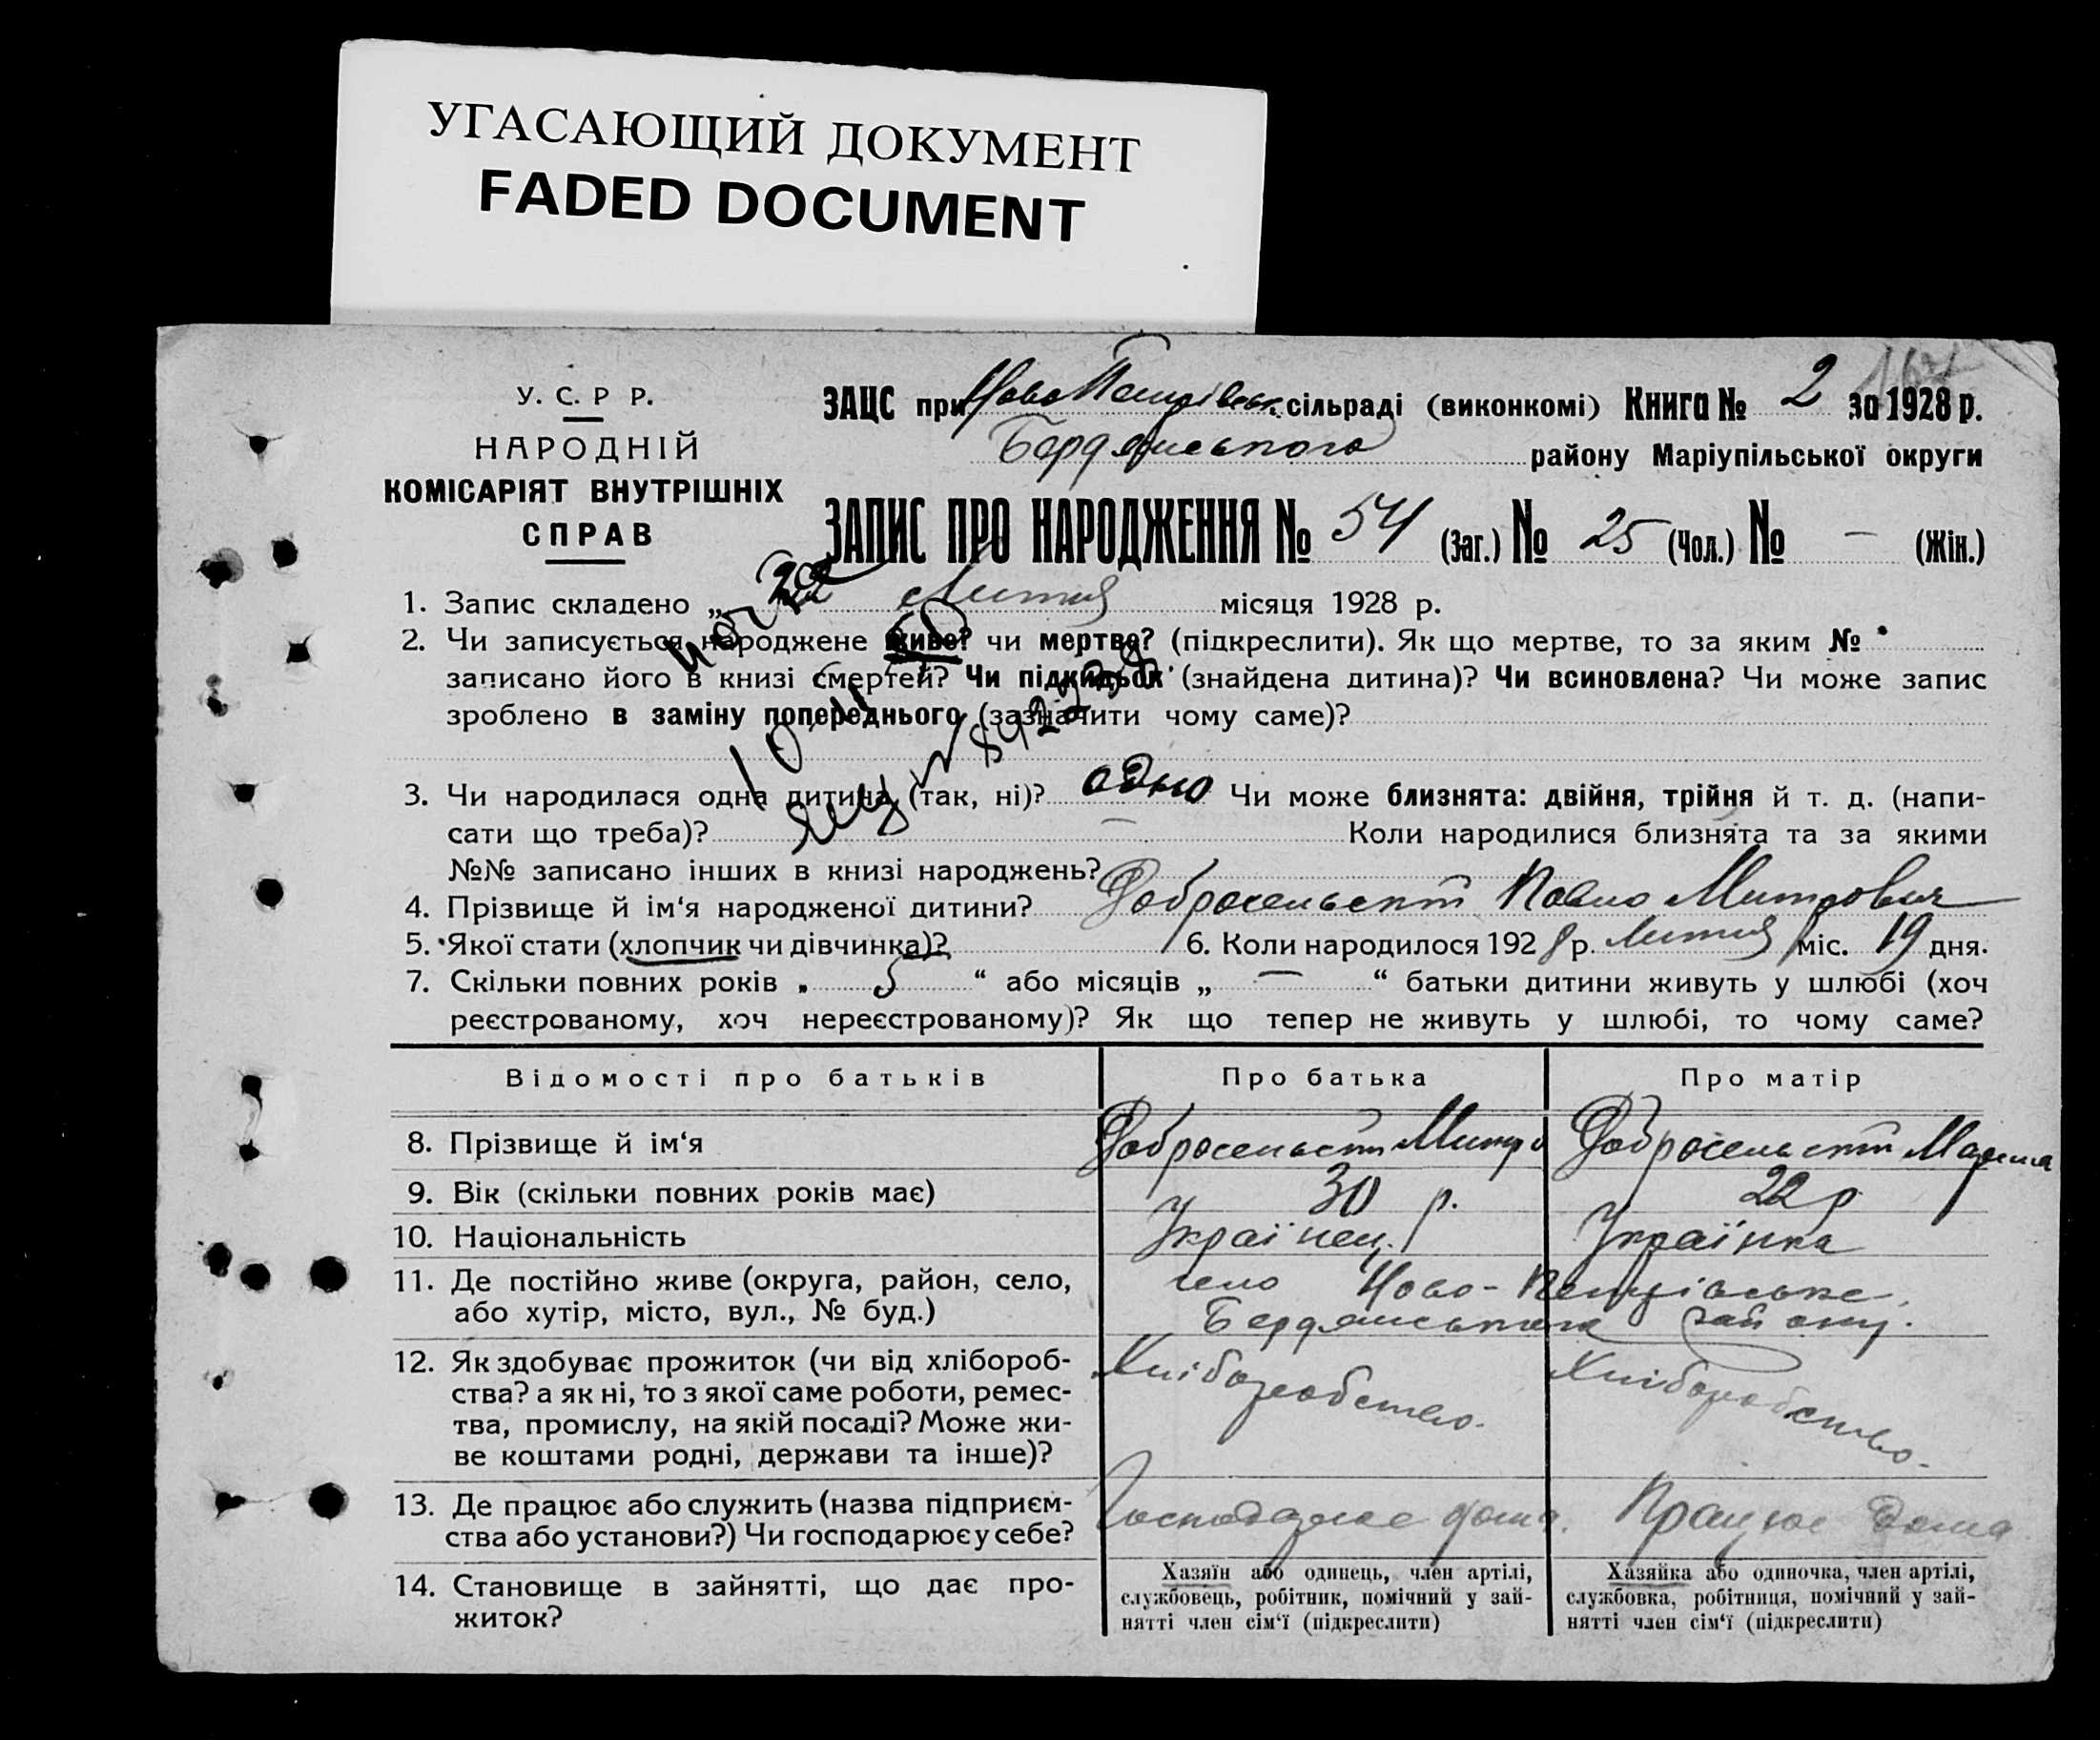 УГАСАЮЩИЙ ДОКУМЕНТ
FADED DOCUMENT
У. С. Р Р.
НАРОДНІЙ
КОМІСАРІЯТ ВНУТРІШНІХ
СПРАВ
ЗАЦС при Ново Петрівськ. сільраді (виконкомі) Книга № 2 за 1928 р.
Бердянського району Маріупільської округи
ЗАПИС ПРО НАРОДЖЕННЯ № 54 (Заг.) № 25 (Чол.) № — (Жін.)
1. Запис складено „ 22 Лютня місяця 1928 р.
2. Чи записується народжене живе? чи мертве? (підкреслити). Як що мертве, то за яким №
записано його в книзі смертей? Чи підкидьок (знайдена дитина)? Чи всиновлена? Чи може запис
зроблено в заміну попереднього (зазначити чому саме)?
3. Чи народилася одна дитина (так, ні)? одно Чи може близнята: двійня, трійня й т. д. (напи-
сати що треба)? — Коли народилися близнята та за якими
№№ записано інших в книзі народжень?
4. Прізвище й ім‘я народженої дитини? Добросельскт Павло Митрович
5. Якої стати (хлопчик чи дівчинка)? 6. Коли народилося 1928 р. Лютня міс. 19 дня.
7. Скільки повних років „ 5 “ або місяців „ — “ батьки дитини живуть у шлюбі (хоч
реєстрованому, хоч нереєстрованому)? Як що тепер не живуть у шлюбі, то чому саме?
Відомості про батьків Про батька Про матір
8. Прізвище й ім‘я Добросельскт Митро Добросельскт Марина
9. Вік (скільки повних років має) 30 р. 22 р
10. Національність Українец. Українка
11. Де постійно живе (округа, район, село, село Ново-Петрівське,
або хутір, місто, вул., № буд.) Бердянського району.
12. Як здобуває прожиток (чи від хлібороб- Хліборобство. Хліборобство.
ства? а як ні, то з якої саме роботи, ремес-
тва, промислу, на якій посаді? Може жи-
ве коштами родні, держави та інше)?
13. Де працює або служить (назва підприєм- Господарює дома. Працює дома
ства або установи?) Чи господарює у себе?
14. Становище в зайнятті, що дає про-
житок?
Хазяїн або одинець, член артілі,
службовець, робітник, помічний у зай-
нятті член сім‘ї (підкреслити)
Хазяйка або одиночка, член артілі,
службовка, робітниця, помічний у зай-
нятті член сім‘ї (підкреслити)